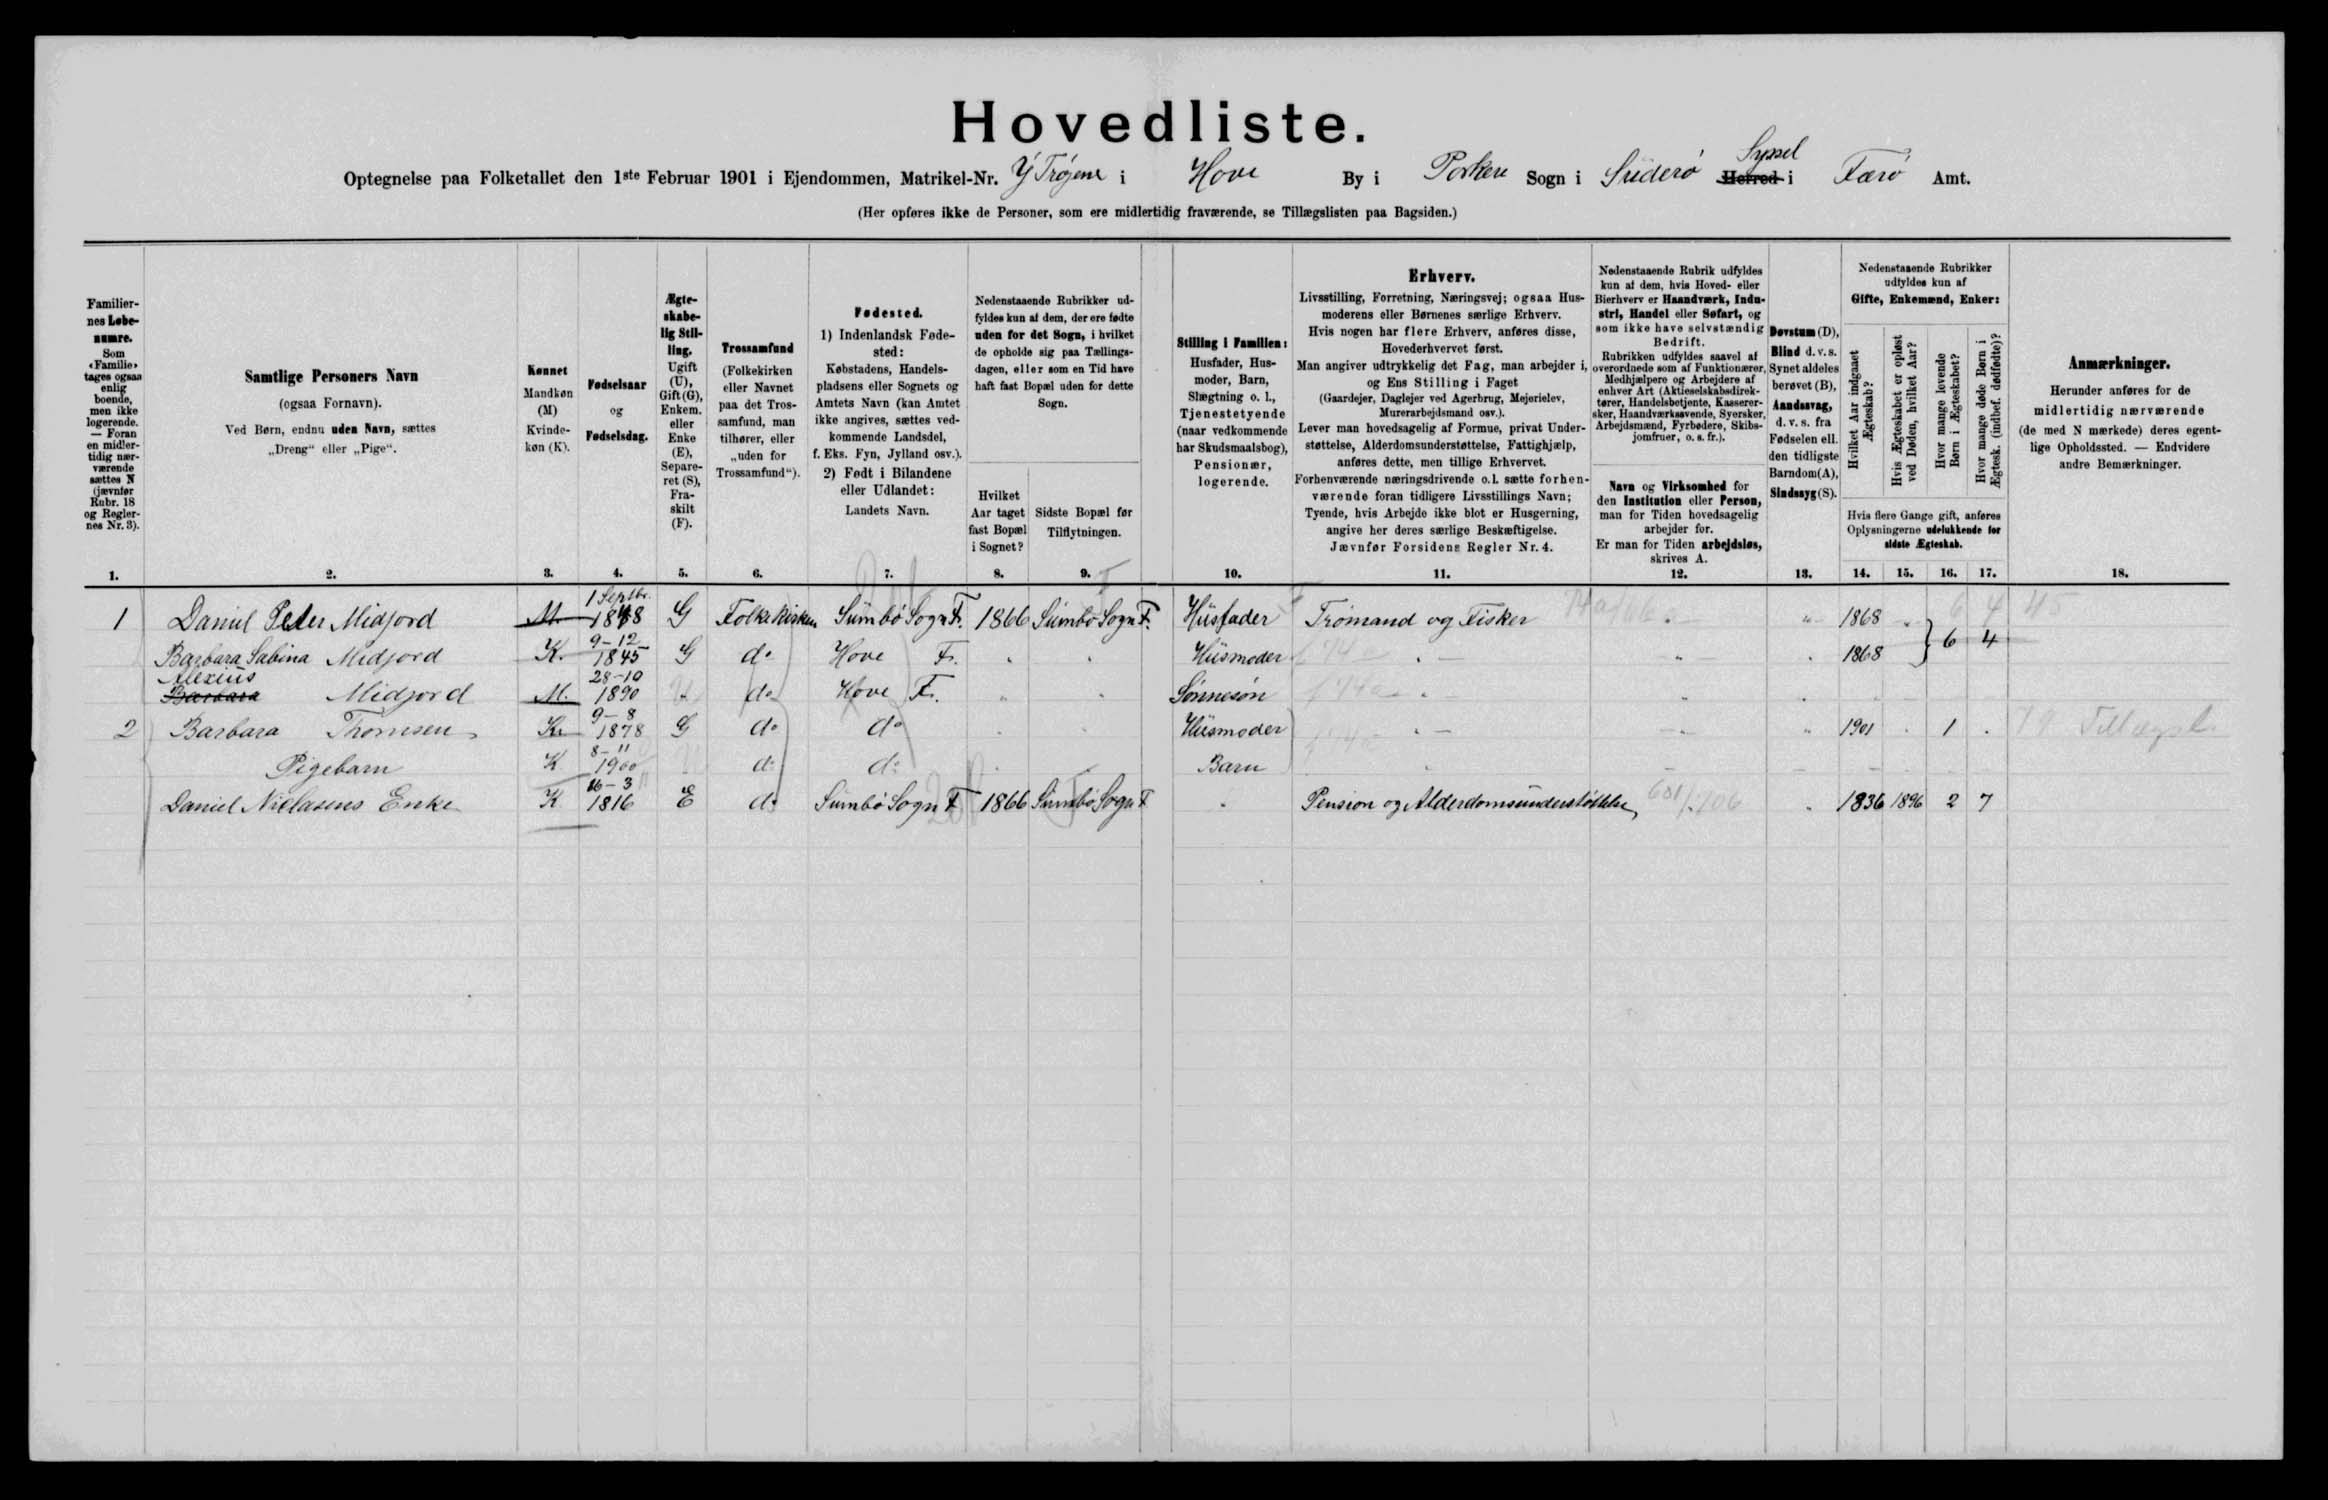 Hovedliste.
Optegnelse paa Folketallet den 1ste Februar 1901 i Ejendommen, Matrikel-Nr. Y Trøjene i Hove By i Porkere Sogn i Süderø Syssel Herred i Færø Amt.
(Her opføres ikke de Personer, som ere midlertidig fraværende, se Tillægslisten paa Bagsiden.)
Familier-
nes Løbe-
numre.
Som
«Familie»
tages ogsaa
enlig
boende,
men ikke
logerende.
— Foran
en midler-
tidig nær-
værende
sættes N
(jævnfør
Rubr. 18
og Regler-
nes Nr. 3).
1.
Samtlige Personers Navn
(ogsaa Fornavn).
Ved Børn, endnu uden Navn, sættes
„Dreng“ eller „Pige“.
2.
Kønnet
Mandkøn
(M)
Kvinde-
køn (K).
3.
Fødselsaar
og
Fødselsdag.
4.
Ægte-
skabe-
lig Stil-
ling.
Ugift
(U),
Gift (G),
Enkem.
eller
Enke
(E),
Separe-
ret (S),
Fra-
skilt
(F).
5.
Trossamfund
(Folkekirken
eller Navnet
paa det Tros-
samfund, man
tilhører, eller
„uden for
Trossamfund“).
6.
Fødested.
1) Indenlandsk Føde-
sted:
Købstadens, Handels-
pladsens eller Sognets og
Amtets Navn (kan Amtet
ikke angives, sættes ved-
kommende Landsdel,
f. Eks. Fyn, Jylland osv.).
2) Født i Bilandene
eller Udlandet:
Landets Navn.
7.
Nedenstaaende Rubrikker ud-
fyldes kun af dem, der ere fødte
uden for det Sogn, i hvilket
de opholde sig paa Tællings-
dagen, eller som en Tid have
haft fast Bopæl uden for dette
Sogn.
Hvilket
Aar taget
fast Bopæl
i Sognet?
8.
Sidste Bopæl før
Tilflytningen.
9.
Stilling i Familien:
Husfader, Hus-
moder, Barn,
Slægtning o. l.,
Tjenestetyende
(naar vedkommende
har Skudsmaalsbog),
Pensionær,
logerende.
10.
Erhverv.
Livsstilling, Forretning, Næringsvej; ogsaa Hus-
moderens eller Børnenes særlige Erhverv.
Hvis nogen har flere Erhverv, anføres disse,
Hovederhvervet først.
Man angiver udtrykkelig det Fag, man arbejder i,
og Ens Stilling i Faget
(Gaardejer, Daglejer ved Agerbrug, Mejerielev,
Murerarbejdsmand osv.).
Lever man hovedsagelig af Formue, privat Under-
støttelse, Alderdomsunderstøttelse, Fattighjælp,
anføres dette, men tillige Erhvervet.
Forhenværende næringsdrivende o. l. sætte forhen-
værende foran tidligere Livsstillings Navn;
Tyende, hvis Arbejde ikke blot er Husgerning,
angive her deres særlige Beskæftigelse.
Jævnfør Forsidens Regler Nr. 4.
11.
Nedenstaaende Rubrik udfyldes
kun af dem, hvis Hoved- eller
Bierhverv er Haandværk, Indu-
stri, Handel eller Søfart, og
som ikke have selvstændig
Bedrift.
Rubrikken udfyldes saavel af
overordnede som af Funktionærer,
Medhjælpere og Arbejdere af
enhver Art (Aktieselskabsdirek-
tører, Handelsbetjente, Kasserer-
sker, Haandværkssvende, Syersker,
Arbejdsmænd, Fyrbødere, Skibs-
jomfruer, o. s. fr.).
Navn og Virksomhed for
den Institution eller Person,
man for Tiden hovedsagelig
arbejder for.
Er man for Tiden arbejdsløs,
skrives A.
12.
Døvstum (D),
Blind d. v. s.
Synet aldeles
berøvet (B),
Aandssvag,
d. v. s. fra
Fødselen ell.
den tidligste
Barndom (A),
Sindssyg (S).
13.
Nedenstaaende Rubrikker
udfyldes kun af
Gifte, Enkemænd, Enker:
Hvilket Aar indgaaet
Ægteskab?
Hvis Ægteskabet er opløst
ved Døden, hvilket Aar?
Hvor mange levende
Børn i Ægteskabet?
Hvor mange døde Børn i
Ægtesk. (indbef. dødfødte)?
Hvis flere Gange gift, anføres
Oplysningerne udelukkende for
sidste Ægteskab.
14. 15. 16. 17.
Anmærkninger.
Herunder anføres for de
midlertidig nærværende
(de med N mærkede) deres egent-
lige Opholdssted. — Endvidere
andre Bemærkninger.
18.
1 Daniel Peter Midjord M. 1 Septbr. 1848 G Folkekirken Sümbø Sogn F. 1866 Sümbø Sogn F. Hüsfader Trømand og Fisker " 1868 "
Barbara Sabina Midjord K. 9-12 1845 G do Hove F. " " Hüsmoder " 1868 } 6 4
Alexius Barbara Midjord M. 28-10 1890 do Hove F. " " Sønnesøn
2 Barbara Thomsen K. 9-8 1878 G do do Hüsmoder " 1901 " 1 " Tillægsl.
Pigebarn K 8-11 1900 do do Barn
Daniel Nielasens Enke K 16-3 1816 E do Sümbø Sogn F 1866 Sümbø Sogn F " Pension og Alderdomsünderstøttelse " 1836 1896 2 7